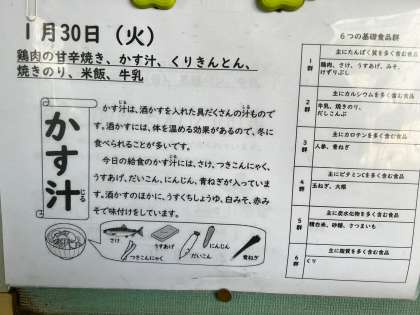 1月30日（火）
鶏肉の甘辛焼き、かす汁、くりきんとん、
焼きのり、米飯、牛乳
かす汁
じる
かす汁は、酒かすを入れた具だくさんの汁もので
す。酒かすには、体を温める効果があるので、冬に
食べられることが多いです。
今日の給食のかす汁には、さけ、つきこんにゃく、
うすあげ、だいこん、にんじん、青ねぎが入っていま
す。酒かすのほかに、うすくちしょうゆ、白みそ、赤み
そで味付けをしています。
さけ
うすあげ
にんじん
つきこんにゃく
だいこん
青ねぎ
6つの基礎食品群
1群
主にたんぱく質を多く含む食品
鶏肉、さけ、うすあげ、みそ、
けずりぶし
2群
主にカルシウムを多く含む食品
牛乳、焼きのり、
だしこんぶ
3群
主にカロテンを多く含む食品
人参、青ねぎ
4群
主にビタミンCを多く含む食品
玉ねぎ、大根
5群
主に炭水化物を多く含む食品
精白米、砂糖、さつまいも
6群
主に脂質を多く含む食品
くり